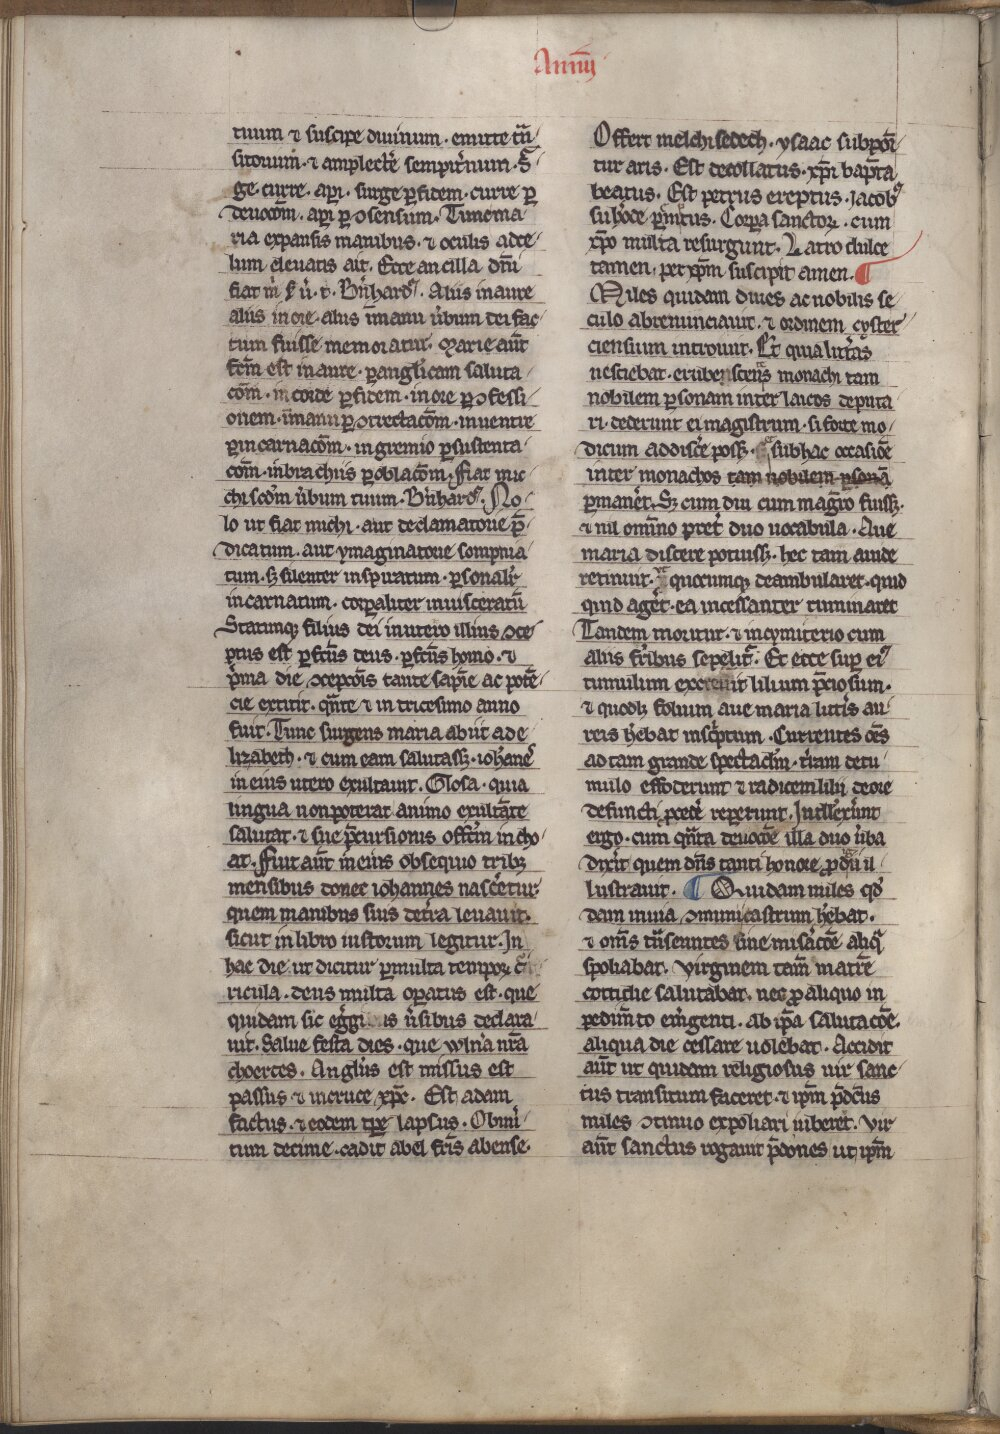 Annu͞
tuum ⁊ suscipe diuinum . emitte tn̄
sitorium . ⁊ amplectere sempiternum . S͛
ge . curre . aperi . surge ꝑ fidem . curre ꝑ
deuocōm . aperi ꝑ ꝯsensum . Tunc ma
ria expansis manibus . ⁊ oculis ad ce
lum eleuatis ait . Ecce ancilla dn̄i
fiat m̍ . Bn̄hardꝰ . Aliis in aure
aliis in ore . aliis ī manu ūbum dei fac
tum fuisse memoratur . Marie aūt
fc̄m est in aure . ꝑ angl̓icam saluta
cōm . in corde ꝑ fidem . in ore ꝑ ꝯfessi
onem . in manu ꝑ ꝯtrectacōm . in uentre
ꝑ incarnacōm . in gremio ꝑ sustenta
cōm . in brachiis ꝑ oblacōm . Fiat mi
chi scd̄m ūbum tuum . Bn̄hardꝰ . No
lo ut fiat michi . aut declamatorie p̄
dicatum . aut ymaginatorie sompnia
tum . sꝫ silenter inspiratum . ꝑsonalit̓
incarnatum . corꝑaliter inuisceratū
Statimqꝫ filius dei in utero illius ꝯce
ptus est ꝑfc̄us deus . ꝑfc̄us homo . ⁊
p̍ma die ꝯcepcōis tante sapīe ac potē
cie extitit . qn̄te ⁊ in tricesimo anno
fuit . Tunc surgens maria abiit ad e
lizabeth . ⁊ cum eam salutassꝫ . ioh̄anes
in eius utero exultauit . Glosa . quia
lingua non poterat animo exultāte
salutat . ⁊ sue p̄cursionis officm̄ incho
at . Fuit aūt in eius obsequio tribꝫ
mensibus donec iohannes nasceretur
quem manibus suis de tr̄a leuauit .
sicut in libro iustorum legitur . In
hac die ut dicitur ꝑ multa tempoꝝ
ricula . deus multa oꝑatus est . que
quidam sic egregiis ūsibus declara
uit . Salue festa dies . que wln̄a nr̄a
choerces . Angl̓us est missus est
passus ⁊ in cruce xp̄c . Est adam
factus . ⁊ eodem tp̄e lapsus . Ob m̍i
tum decime . cadit abel fr̄is ab ense .
Offert melchisedech . ysaac subpoī
tur aris . Est decollatus . xp̄i bapt̄a
beatus . Est petrus ereptus . Jacobꝰ
sub hoc ꝑemtus . Corꝑa sanctoꝝ . cum
xp̄o multa resurgunt . Latro dulce
tamen . per xp̄m suscipit amen . ¶
Miles quidam diues ac nobilis se
culo abrenunciauit . ⁊ ordinem cyster
ciensium introiuit . Et quia litt̄as
nesciebat . erubescens monachi tam
nobilem ꝑsonam inter laicos deputa
ri . dederunt ei magistrum . si forte mo
dicum addiscere possꝫ . subhac occasiōe
inter monachos tam nobilem ꝑsonā
ꝑmaneret . Sꝫ cum diu cum magr̄o fuissꝫ .
⁊ nil om̄ino p̄ter duo uocabula . Aue
maria discere potuissꝫ . hec tam auide
retinuit . quocumqꝫ deambularet . quid
quid ageret . ea incessanter ruminaret
Tandem moritur . ⁊ in cymiterio cum
aliis fr̄ibus sepelitᷣ . Et ecce suꝑ eiꝰ
tumulum excreuit lilium p̄ciosum .
⁊ quodlꝫ folium aue maria litt̄is au
reis h̄ebat insc̍ptum . Currentes oēs
ad tam grande spectaclm̄ . t̓ram de tu
mulo effoderunt ⁊ radicem lilii de ore
defuncti ꝓcedere reperiunt . Intllexer̄unt
ergo . cum qn̄ta deuocōe illa duo ūba
dixit quem dn̄s tanti honore ꝓdigii il
lustrauit . ¶ Quidam miles qd̓
dam in uia ꝯmuni castrum h̄ebat .
⁊ om̄s tn̄seuntes sine mis̓acōe aliq̄
spoliabat . Virginem tam̄ matrē
cottidie salutabat . nec ꝓ aliquo in
pedim̄to em̓genti . ab ip̄a salutacōe
aliqua die cessare uolebat . Accidit
aūt ut quidam religiosus uir sanc
tus transitum faceret . ⁊ ip̄m p̄dc̄us
miles ꝯtinuo expoliari iuberet . Vir
aūt sanctus rogauit p̄dones ut ip̄m